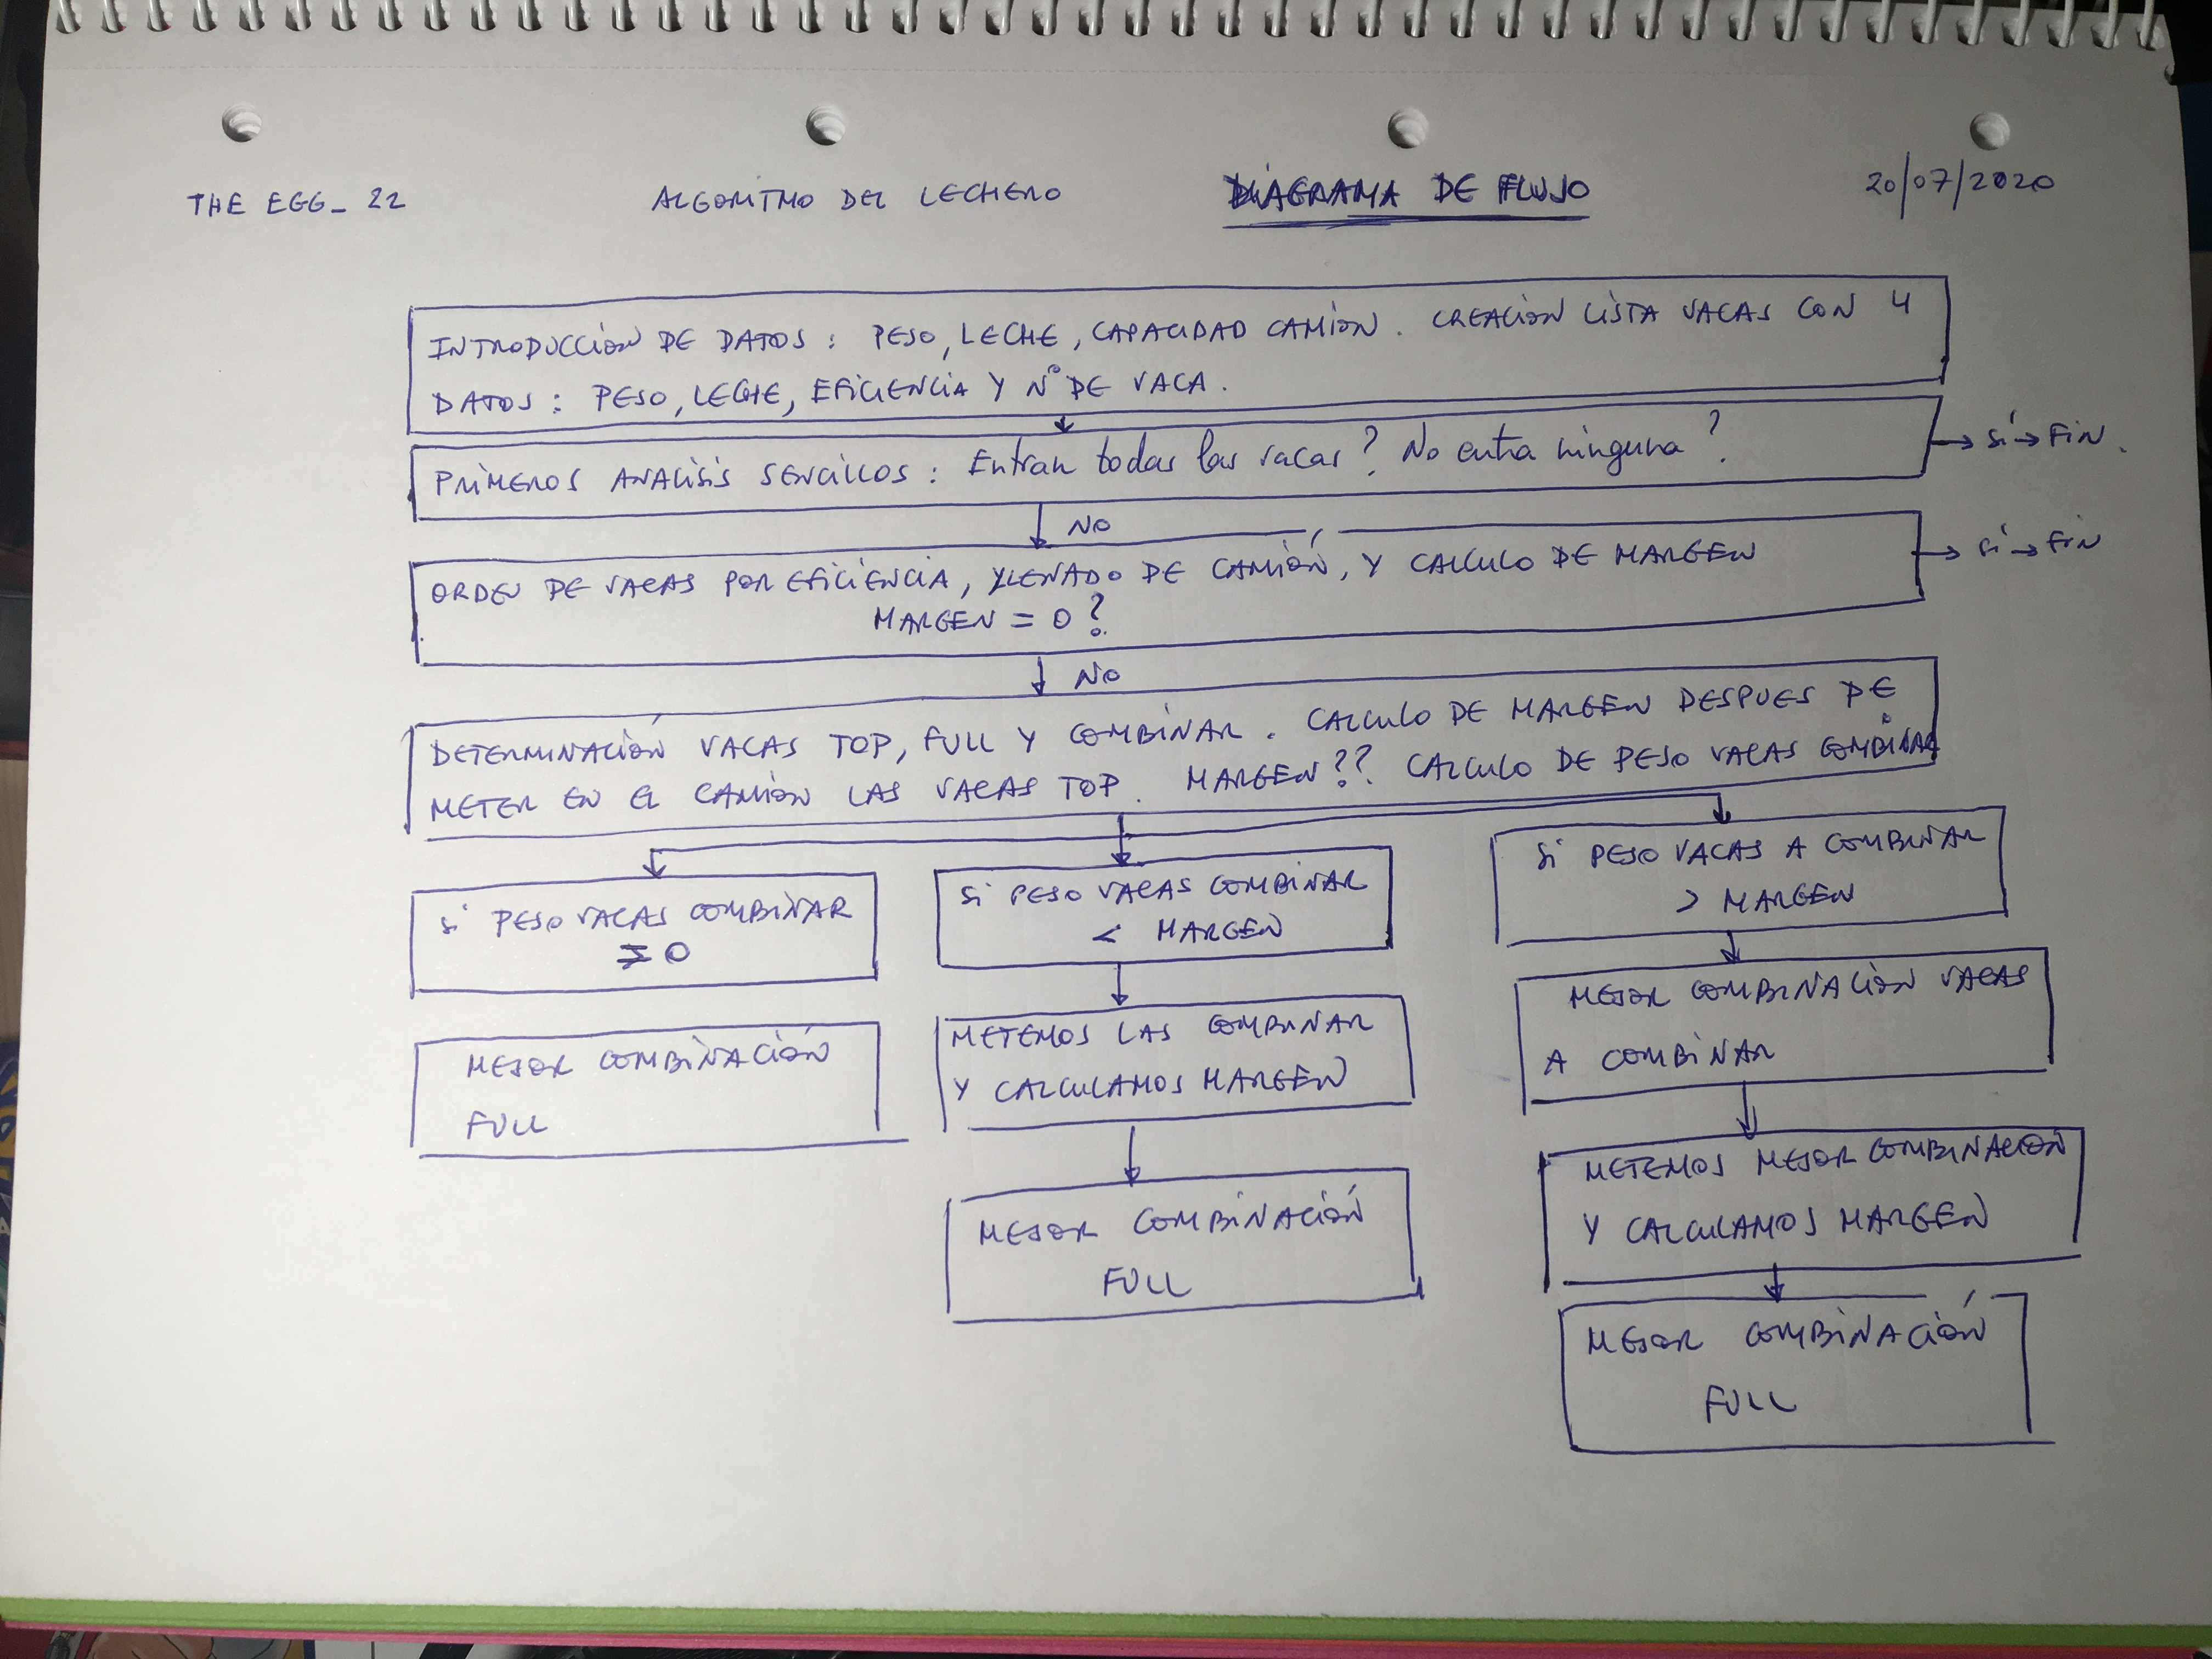 THE EGG_22
ALGORITMO DEL LECHERO
DIAGRAMA DE FLUJO
20/07/2020
INTRODUCCIÓN DE DATOS : PESO, LECHE, CAPACIDAD CAMIÓN. CREACIÓN LISTA VACAS CON 4
DATOS : PESO, LECHE, EFICIENCIA Y Nº DE VACA.
PRIMEROS ANALISIS SENCILLOS : Entran todas las vacas? No entra ninguna?
→ Sí → FIN.
NO
ORDEN DE VACAS POR EFICIENCIA, LLENADO DE CAMIÓN, Y CALCULO DE MARGEN
MARGEN = 0?
→ Sí → FIN
NO
DETERMINACIÓN VACAS TOP, FULL Y COMBINAR. CALCULO DE MARGEN DESPUES DE
METER EN EL CAMIÓN LAS VACAS TOP. MARGEN?? CALCULO DE PESO VACAS COMBINAR
Si PESO VACAS COMBINAR
= 0
MEJOR COMBINACIÓN
FULL
Si PESO VACAS COMBINAR
< MARGEN
METEMOS LAS COMBINAR
Y CALCULAMOS MARGEN
MEJOR COMBINACIÓN
FULL
Si PESO VACAS A COMBINAR
> MARGEN
MEJOR COMBINACIÓN VACAS
A COMBINAR
METEMOS MEJOR COMBINACIÓN
Y CALCULAMOS MARGEN
MEJOR COMBINACIÓN
FULL